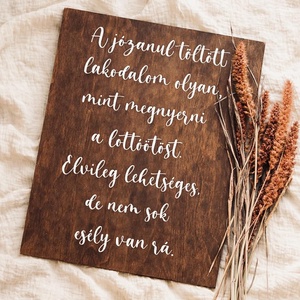 A józanul töltött
lakodalom olyan,
mint megnyerni
a lottóötöst.
Elvileg lehetséges,
de nem sok
esély van rá.